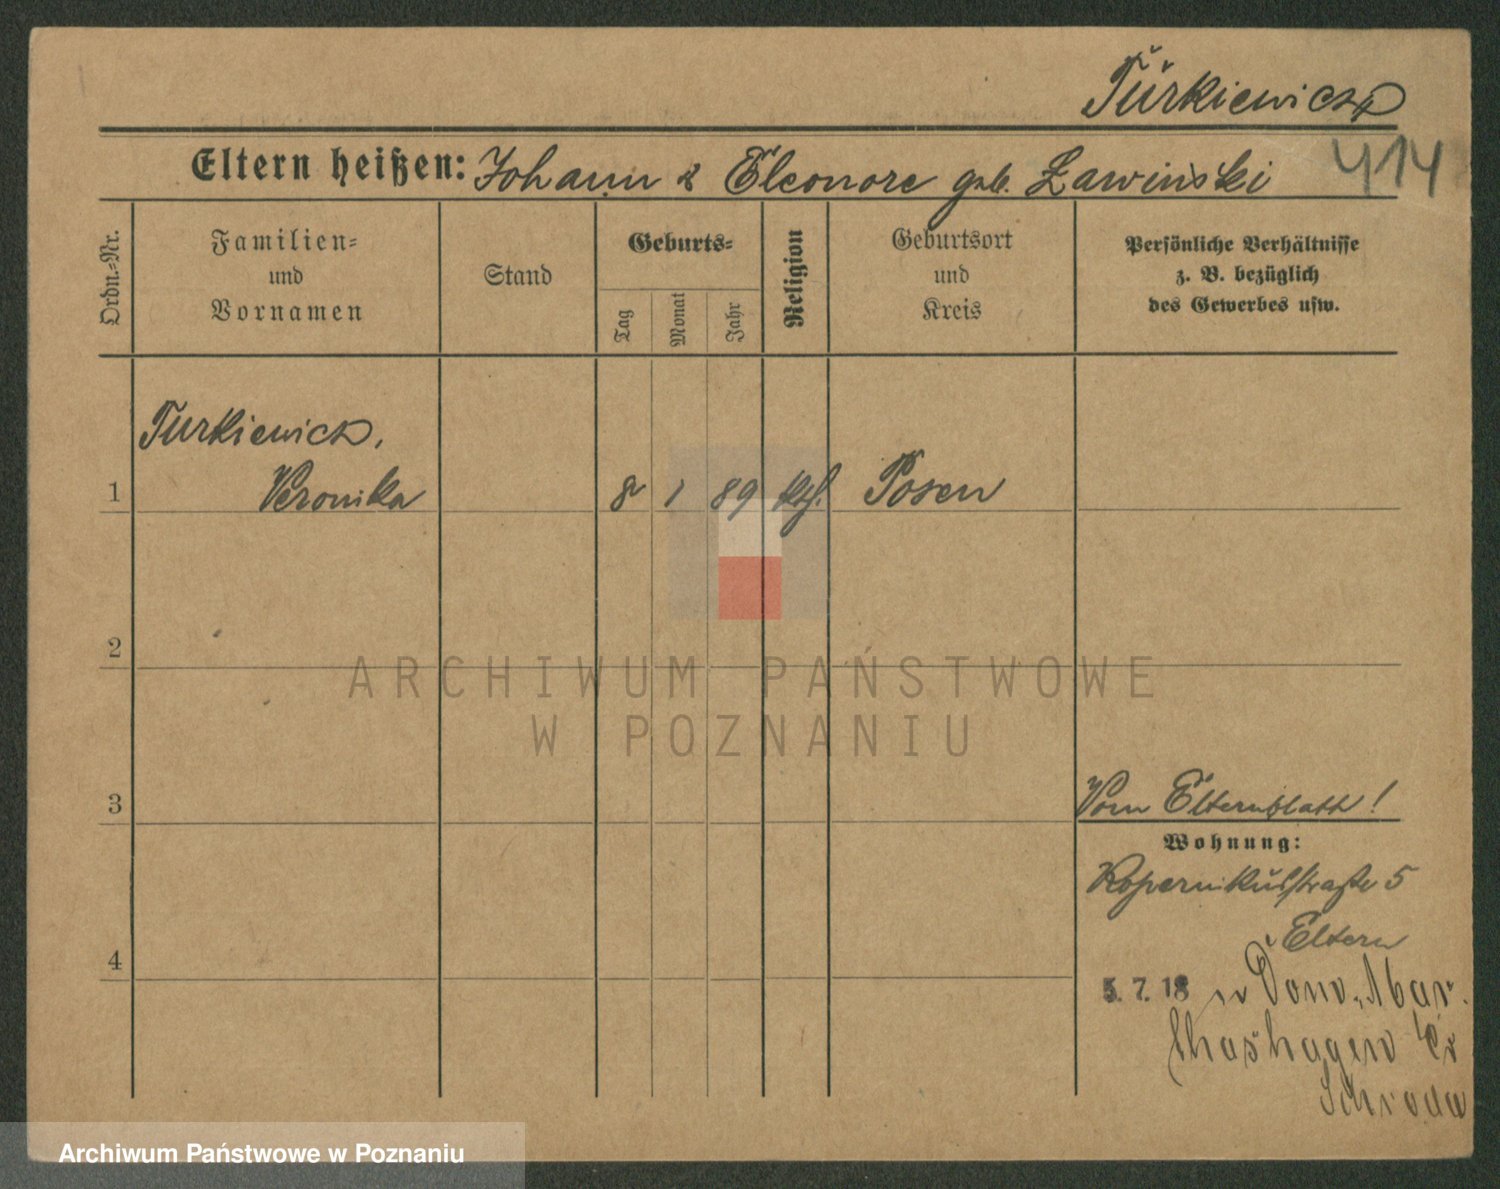 Türkiewicz
Eltern heißen: Johann & Eleonore geb. Zawinski
414
Ordn.-Nr.
Familien-
und
Vornamen
Stand
Geburts-
Tag
Monat
Jahr
Religion
Geburtsort
und
Kreis
Persönliche Verhältnisse
z. B. bezüglich
des Gewerbes usw.
Turkiewicz,
1 Veronika 8 1 89 kth. Posen
2
3
4
Vom Elternblatt!
Wohnung:
Kopernikusstraße 5
Eltern
5. 7. 18 n Dom. Mar.
Schroda
ARCHIWUM PAŃSTWOWE
W POZNANIU
Archiwum Państwowe w Poznaniu